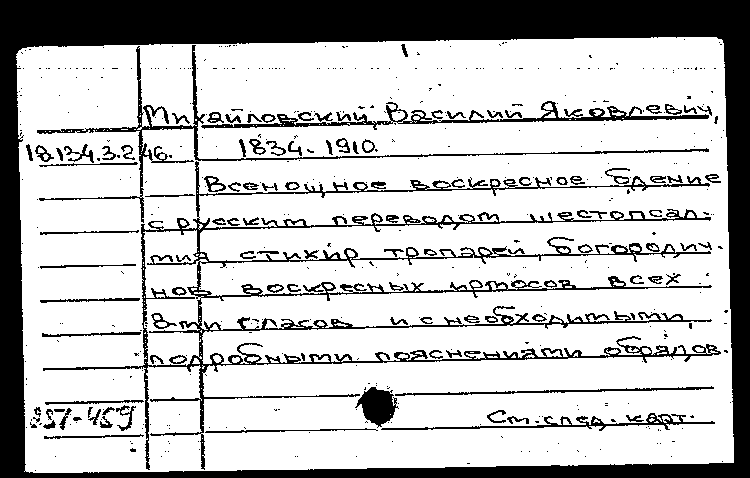 1.
Михайловский, Василий Яковлевич,
18.134.3.246. 1834-1910.
Всенощное воскресное бдение
с русским переводом шестопсал-
мия, стихир, тропарей, богородич-
нов, воскресных ирмосов всех
8-ми гласов и с необходимыми,
подробными пояснениями обрядов.
См. след. карт.